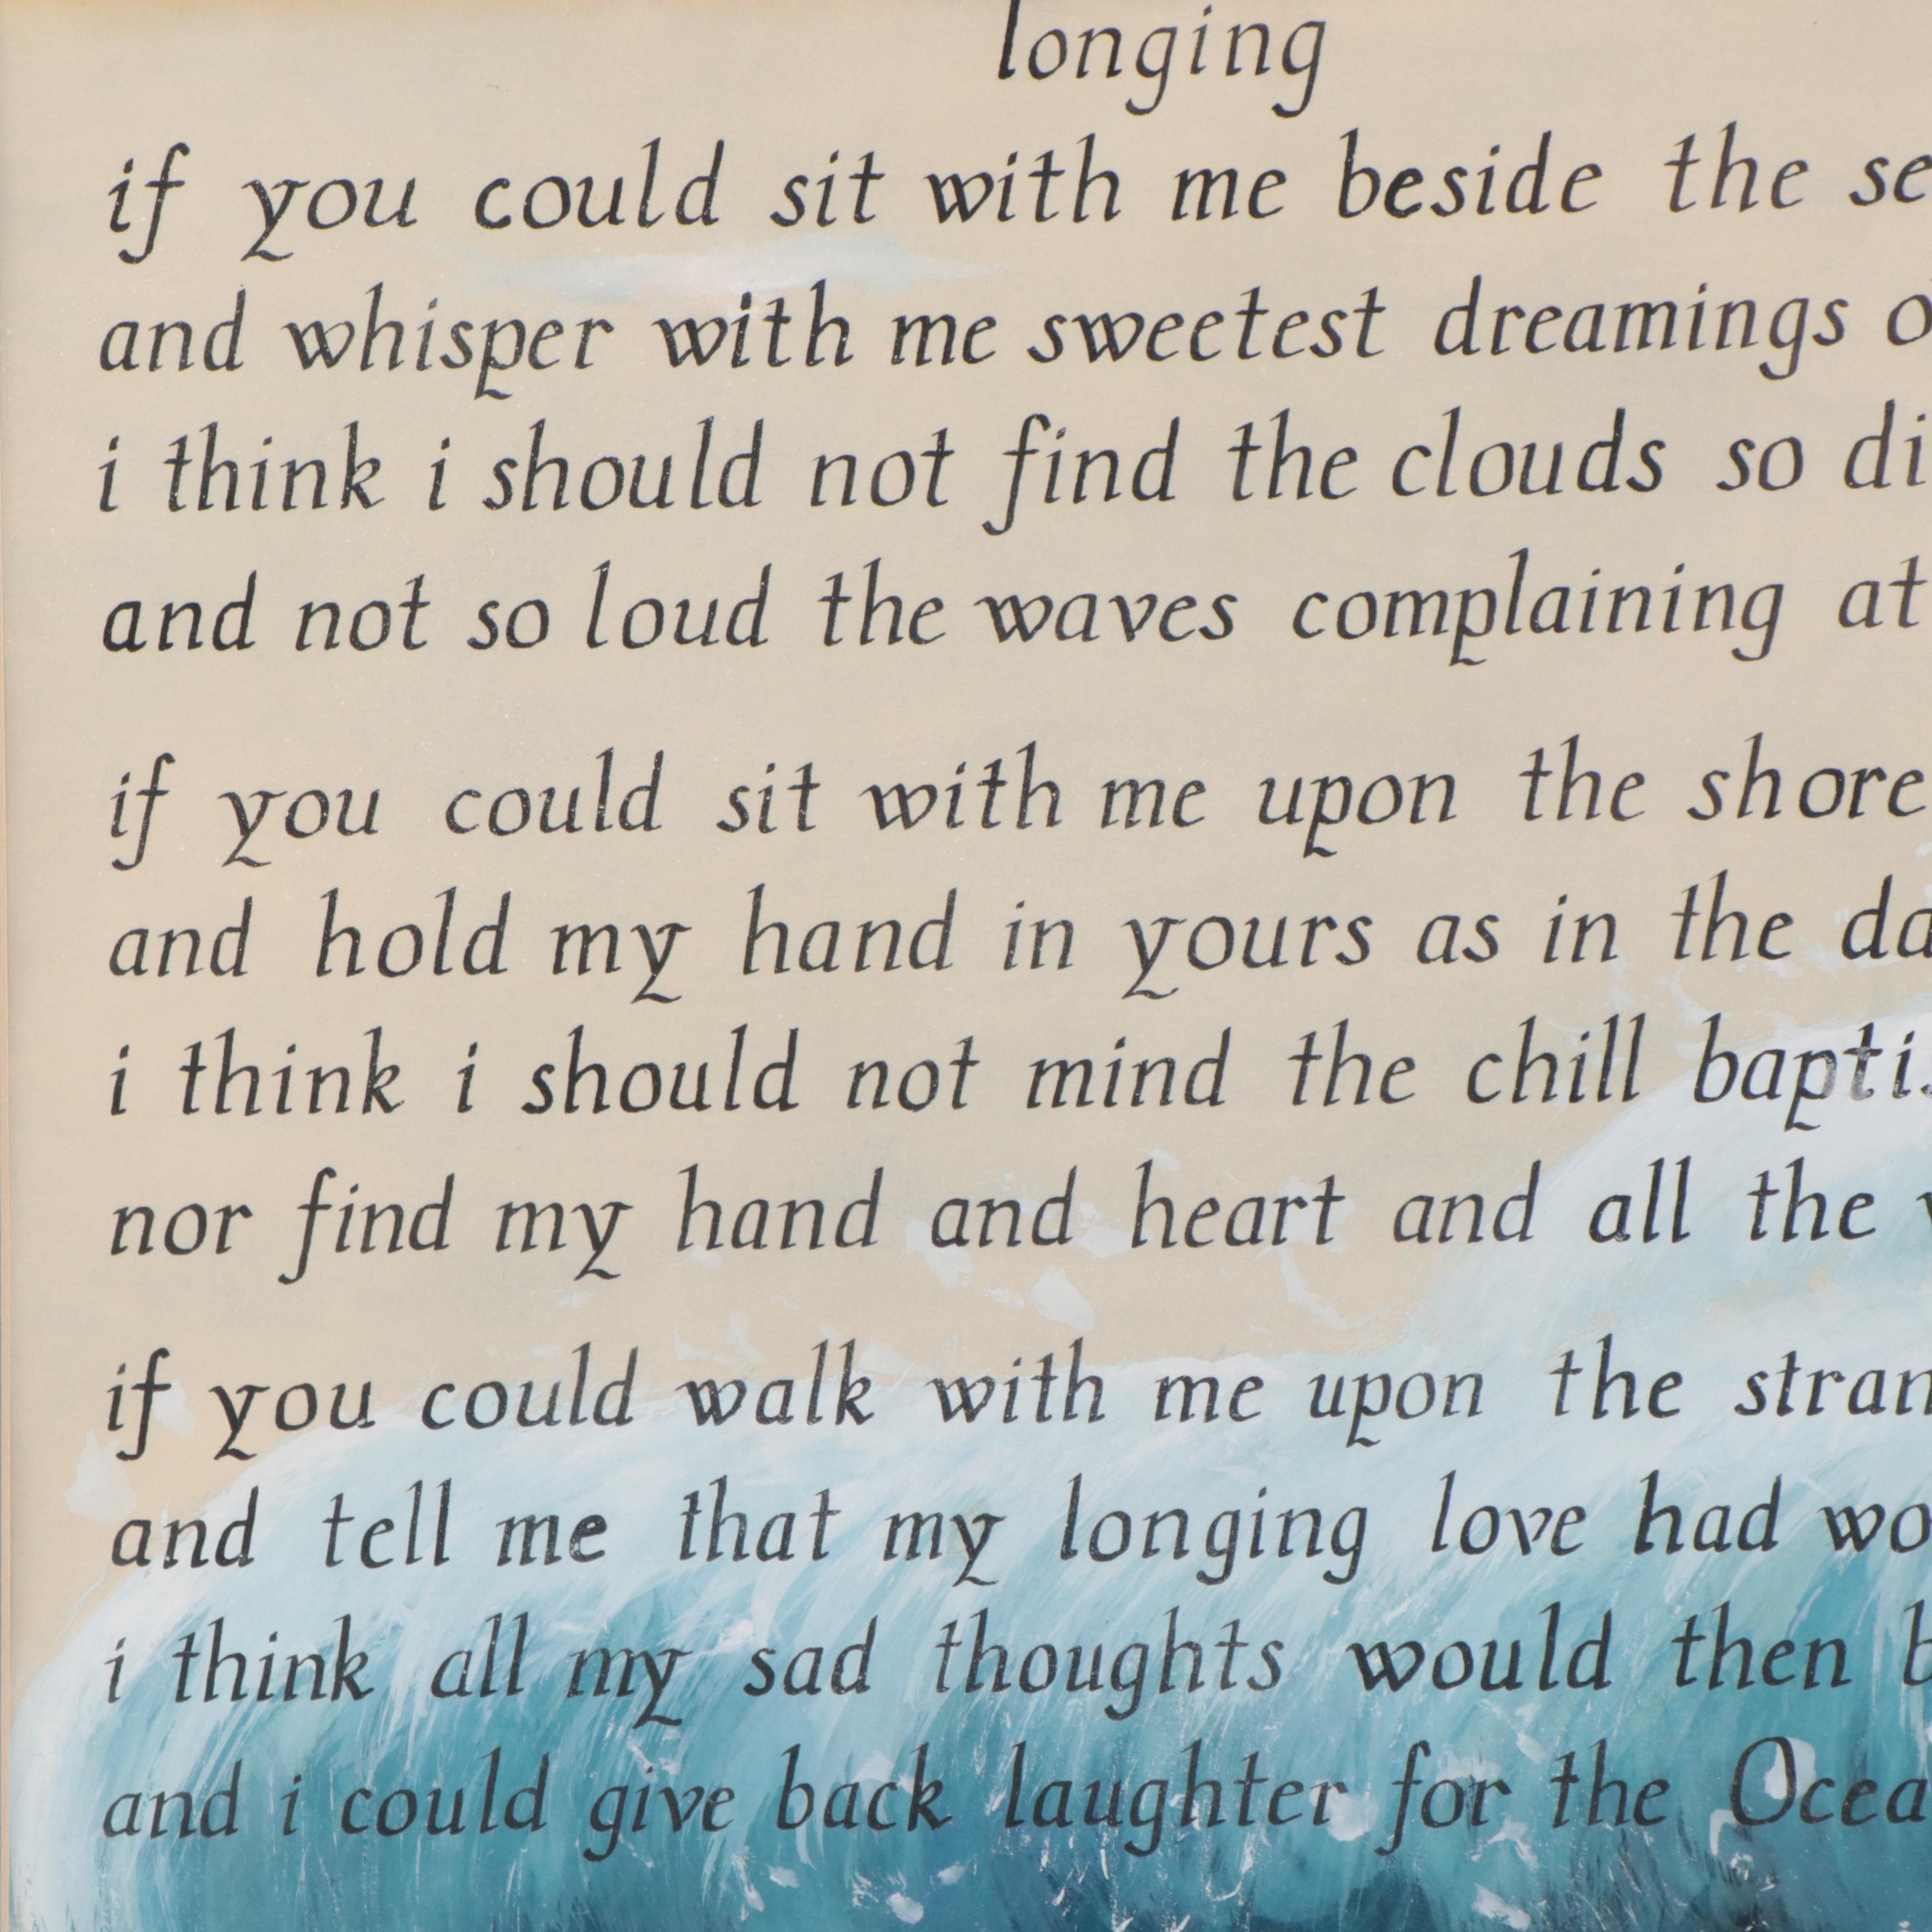 longing
if you could sit with me beside the se
and whisper with me sweetest dreamings o
i think i should not find the clouds so di
and not so loud the waves complaining at
if you could sit with me upon the shore
and hold my hand in yours as in the da
i think i should not mind the chill bapti
nor find my hand and heart and all the
if you could walk with me upon the stran
and tell me that my longing love had wo
i think all my sad thoughts would then b
and i could give back laughter for the Ocea